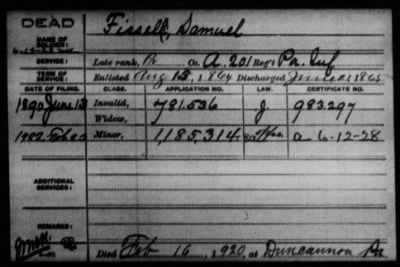 DEAD
NAME OF SOLDIER: Fissell, Samuel
SERVICE: Late rank, Co. A, 201 Reg't Pa. Inf
TERM OF SERVICE: Enlisted Aug 15, 1864 Discharged June 1865
DATE OF FILING. CLASS. APPLICATION NO. LAW. CERTIFICATE NO.
1890 June 13 Invalid, 781.536 J 983297
Widow,
Minor, 1,185,314 a 6-12-28
ADDITIONAL SERVICES:
REMARKS:
Died Feb 16, 1920, at Duncannon Pa